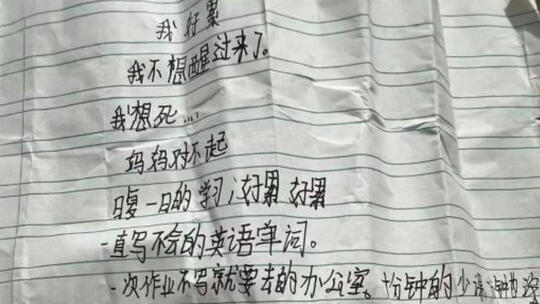 我好累
我不想醒过来了。
我想死...
妈妈对不起
日复一日的学习,好累 好累
一直写不会的英语单词。
一次作业不写就要去的办公室。十分钟的少